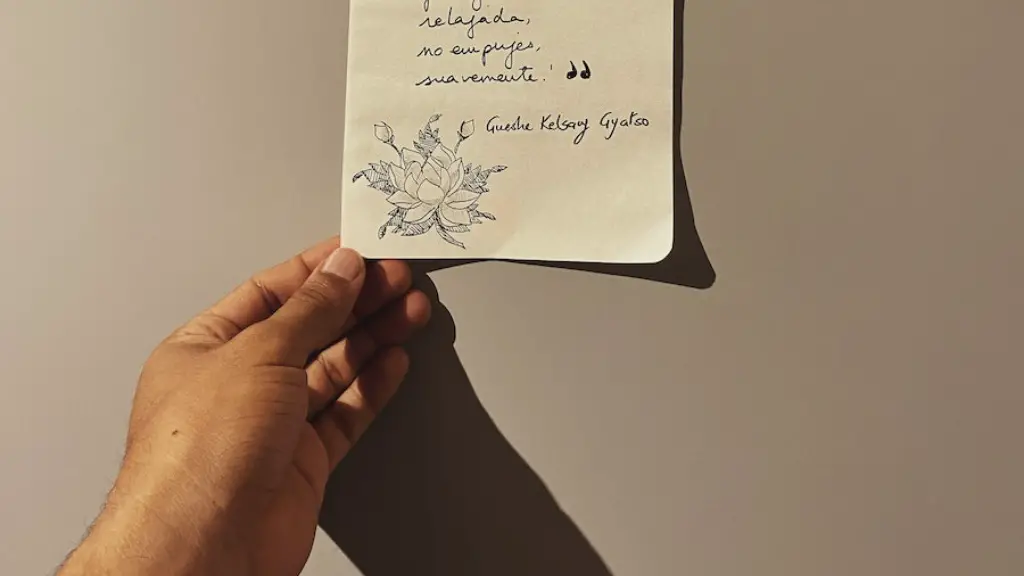 relajada,
no empujes,
suavemente.' ”
Gueshe Kelsang Gyatso